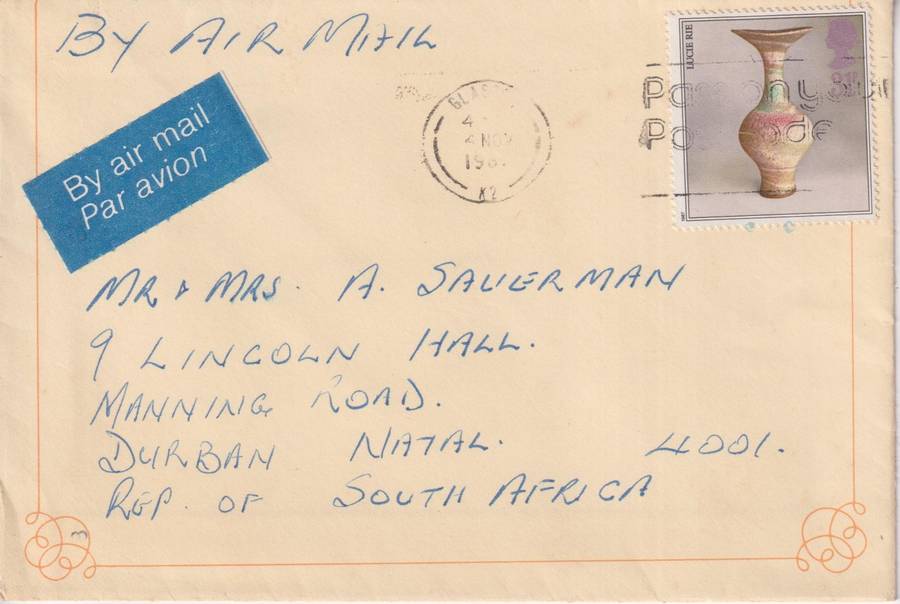 BY AIR MAIL
By air mail
Par avion
LUCIE RIE
4 NOV
K2
MR & MRS. A. SAUERMAN
9 LINCOLN HALL.
MANNING ROAD.
DURBAN NATAL. 4001.
REP. OF SOUTH AFRICA
3